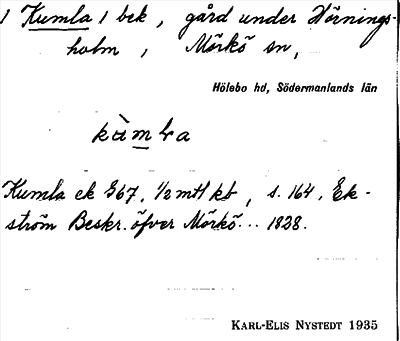 1 Kumla / bek, gård under Hörnings-
holm, Mörkö sn,
Hölebo hd, Södermanlands län
Kumla ek 967. 1/2 mtl kb, s. 164. Ek-
ström Beskr. öfver Mörkö... 1828.
KARL-ELIS NYSTEDT 1935